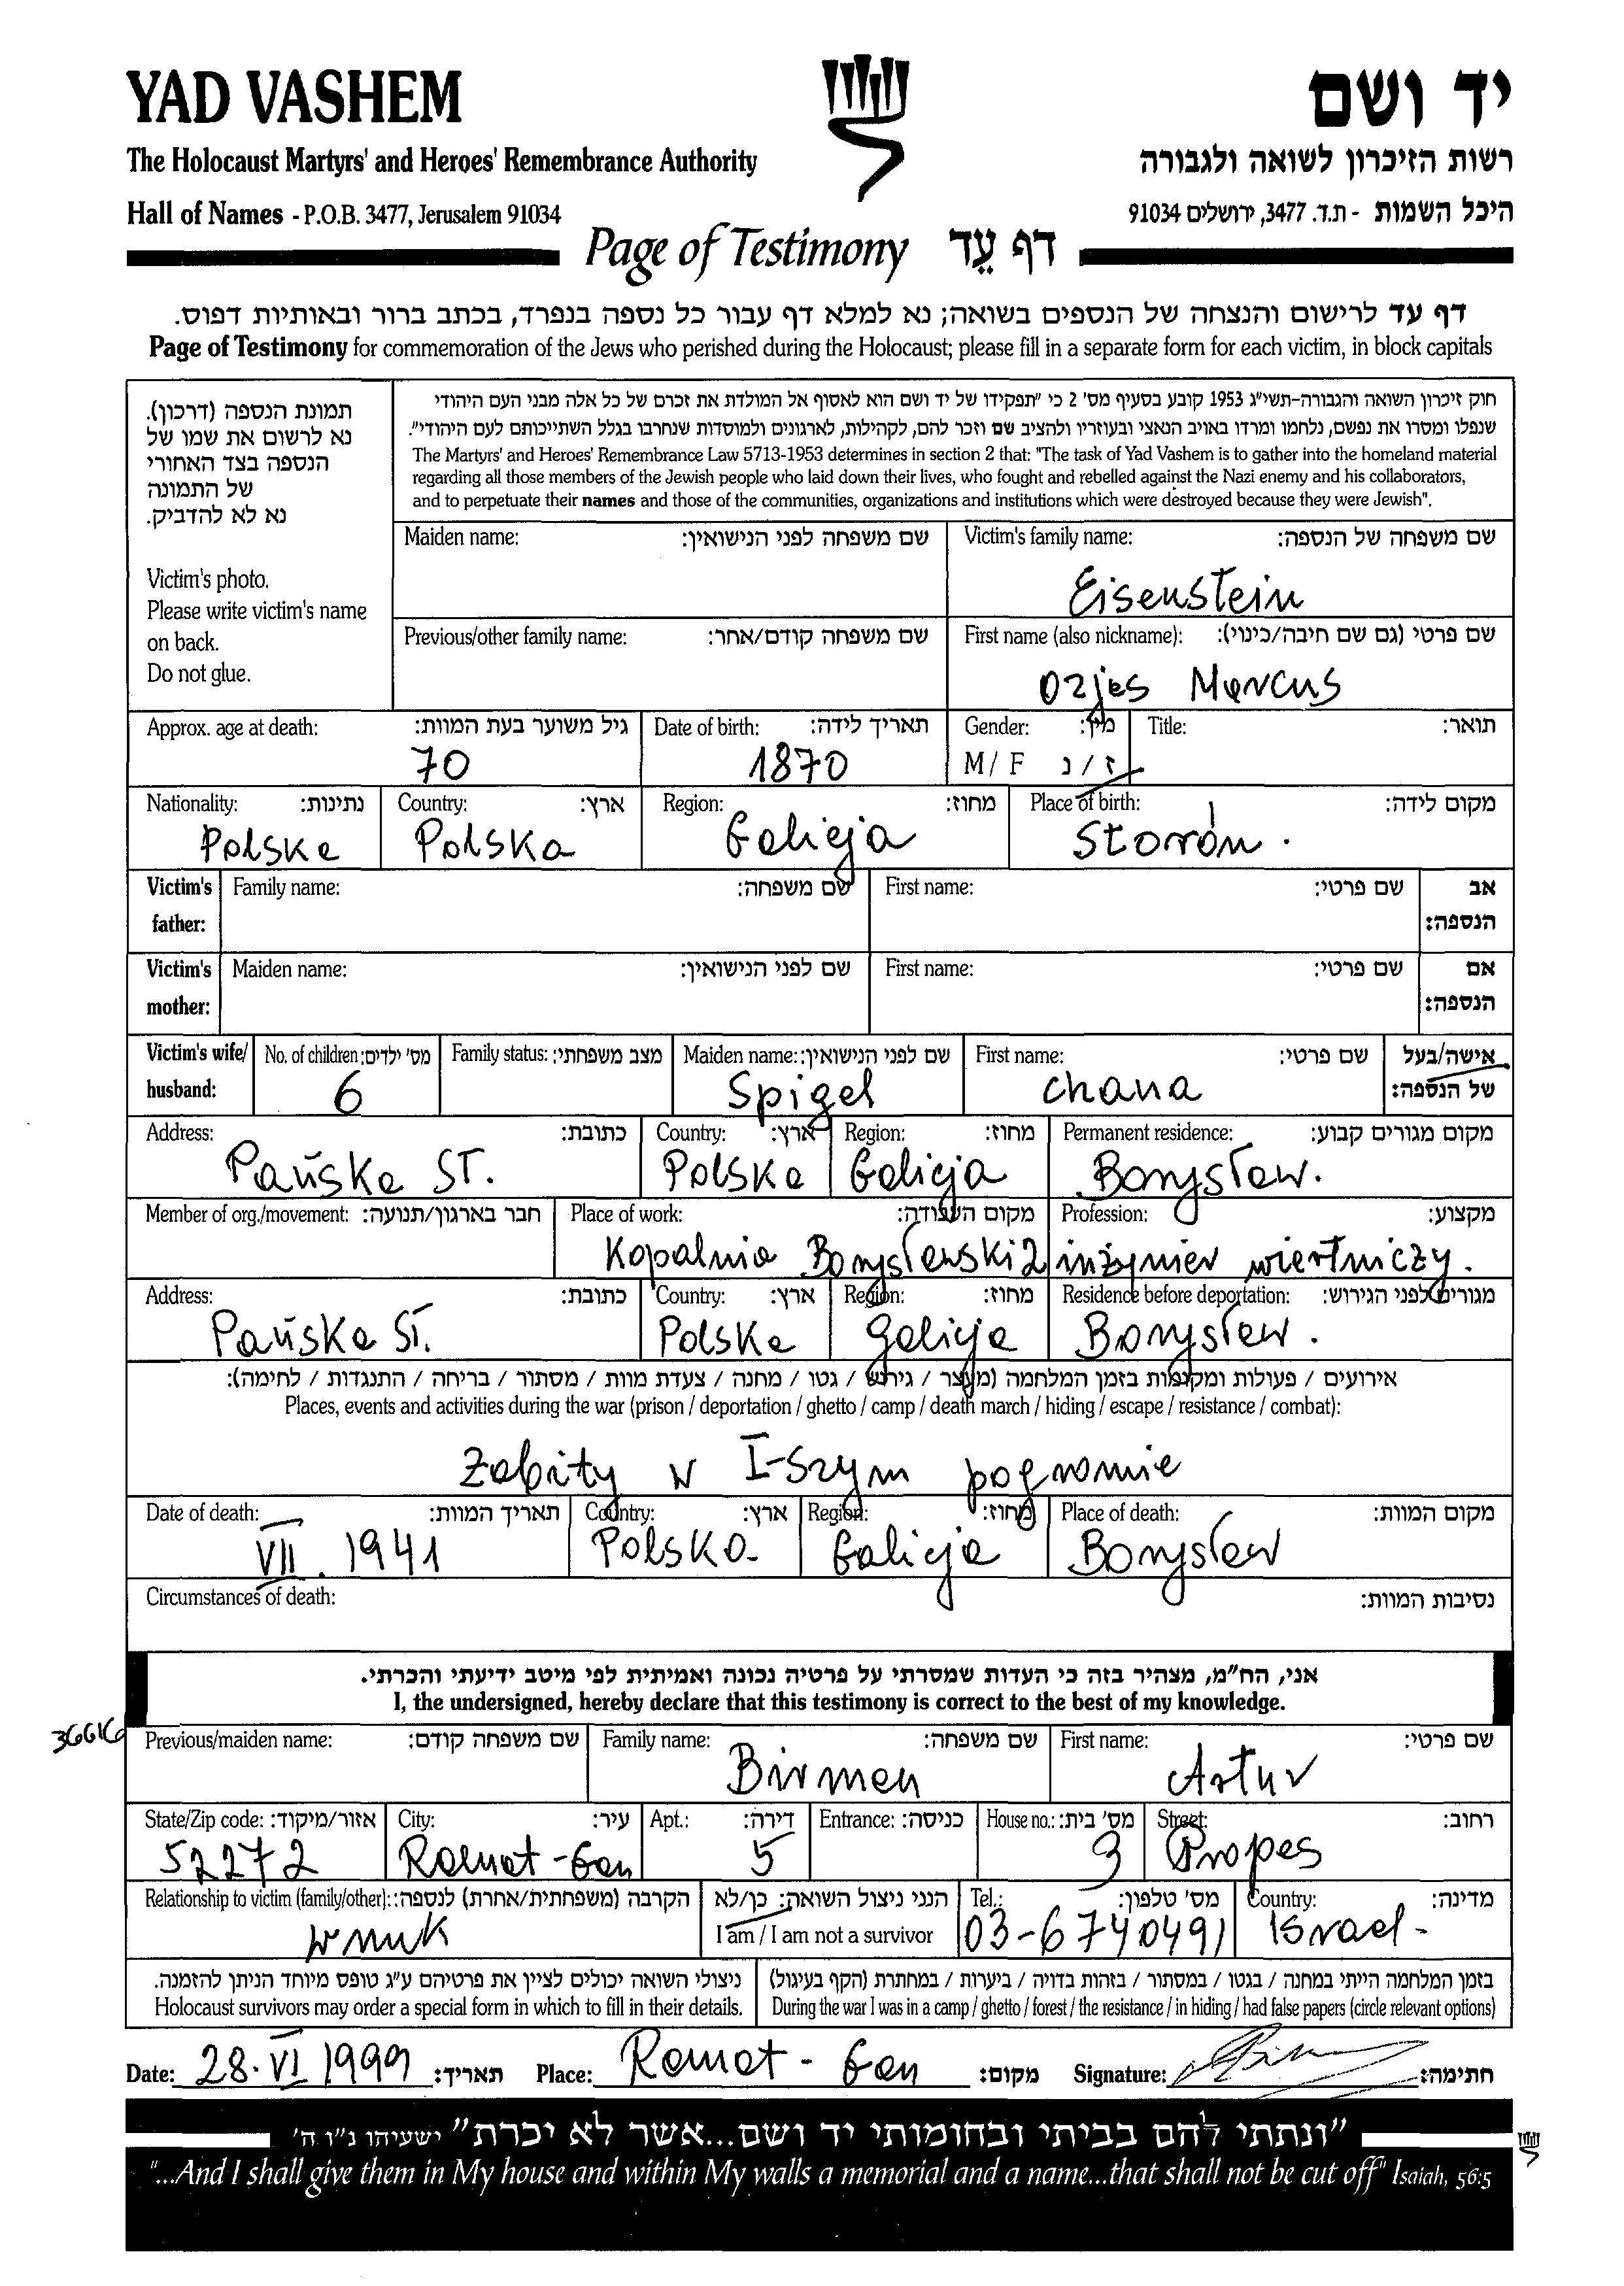 YAD VASHEM
יד ושם
The Holocaust Martyrs' and Heroes' Remembrance Authority
רשות הזיכרון לשואה ולגבורה
Hall of Names - P.O.B. 3477, Jerusalem 91034
היכל השמות - ת.ד. 3477, ירושלים 91034
Page of Testimony דף עֵד
דף עד לרישום והנצחה של הנספים בשואה; נא למלא דף עבור כל נספה בנפרד, בכתב ברור ובאותיות דפוס.
Page of Testimony for commemoration of the Jews who perished during the Holocaust; please fill in a separate form for each victim, in block capitals
תמונת הנספה (דרכון).
נא לרשום את שמו של
הנספה בצד האחורי
של התמונה
נא לא להדביק.
Victim's photo.
Please write victim's name
on back.
Do not glue.
חוק זיכרון השואה והגבורה-תשי"ג 1953 קובע בסעיף מס' 2 כי "תפקידו של יד ושם הוא לאסוף אל המולדת את זכרם של כל אלה מבני העם היהודי
שנפלו ומסרו את נפשם, נלחמו ומרדו באויב הנאצי ובעוזריו ולהציב שם וזכר להם, לקהילות, לארגונים ולמוסדות שנחרבו בגלל השתייכותם לעם היהודי".
The Martyrs' and Heroes' Remembrance Law 5713-1953 determines in section 2 that: "The task of Yad Vashem is to gather into the homeland material
regarding all those members of the Jewish people who laid down their lives, who fought and rebelled against the Nazi enemy and his collaborators,
and to perpetuate their names and those of the communities, organizations and institutions which were destroyed because they were Jewish".
Maiden name: שם משפחה לפני הנישואין:
Victim's family name: שם משפחה של הנספה:
Eisenstein
Previous/other family name: שם משפחה קודם/אחר:
First name (also nickname): שם פרטי (גם שם חיבה/כינוי):
Ozjes Marcus
Approx. age at death: גיל משוער בעת המוות:
70
Date of birth: תאריך לידה:
1870
Gender: מין:
M / F ז / נ
Title: תואר:
Nationality: נתינות:
Polska
Country: ארץ:
Polska
Region: מחוז:
Galicja
Place of birth: מקום לידה:
Victim's father: Family name: שם משפחה: First name: שם פרטי: אב הנספה:
Victim's mother: Maiden name: שם לפני הנישואין: First name: שם פרטי: אם הנספה:
Victim's wife/ husband: No. of children: מס' ילדים: Family status: מצב משפחתי: Maiden name: שם לפני הנישואין: First name: שם פרטי: אישה/בעל של הנספה:
6 Spigel Chana
Address: כתובת: Country: ארץ: Region: מחוז: Permanent residence: מקום מגורים קבוע:
Pańska ST. Polska Galicja Borysław.
Member of org./movement: חבר בארגון/תנועה: Place of work: מקום העבודה: Profession: מקצוע:
Kopalnia inżynier wiertniczy.
Address: כתובת: Country: ארץ: Region: מחוז: Residence before deportation: מגורים לפני הגירוש:
Pańska ST. Polska Galicja Borysław.
אירועים / פעולות ומקומות בזמן המלחמה (מעצר / גירוש / גטו / מחנה / צעדת מוות / מסתור / בריחה / התנגדות / לחימה):
Places, events and activities during the war (prison / deportation / ghetto / camp / death march / hiding / escape / resistance / combat):
Zabity w I-szym pogromie
Date of death: תאריך המוות: Country: ארץ: Region: מחוז: Place of death: מקום המוות:
VII. 1941 Polska Galicja Borysław
Circumstances of death: נסיבות המוות:
אני, הח"מ, מצהיר בזה כי העדות שמסרתי על פרטיה נכונה ואמיתית לפי מיטב ידיעתי והכרתי.
I, the undersigned, hereby declare that this testimony is correct to the best of my knowledge.
Previous/maiden name: שם משפחה קודם: Family name: שם משפחה: First name: שם פרטי:
Birman Artur
State/Zip code: אזור/מיקוד: City: עיר: Apt.: דירה: Entrance: כניסה: House no.: מס' בית: Street: רחוב:
52272 Ramat-Gan 5 3 Propes
Relationship to victim (family/other): הקרבה (משפחתית/אחרת) לנספה: הנני ניצול השואה: כן/לא Tel.: מס' טלפון: Country: מדינה:
wnuk I am / I am not a survivor 03-6740491 Israel-
ניצולי השואה יכולים לציין את פרטיהם ע"ג טופס מיוחד הניתן להזמנה.
Holocaust survivors may order a special form in which to fill in their details.
בזמן המלחמה הייתי במחנה / בגטו / במסתור / בזהות בדויה / ביערות / במחתרת (הקף בעיגול)
During the war I was in a camp / ghetto / forest / the resistance / in hiding / had false papers (circle relevant options)
Date: 28.VI 1999 תאריך: Place: Ramat-Gan מקום: Signature: חתימה:
"ונתתי להם בביתי ובחומותי יד ושם...אשר לא יכרת" ישעיהו נ"ו ה'
"...And I shall give them in My house and within My walls a memorial and a name...that shall not be cut off" Isaiah, 56:5